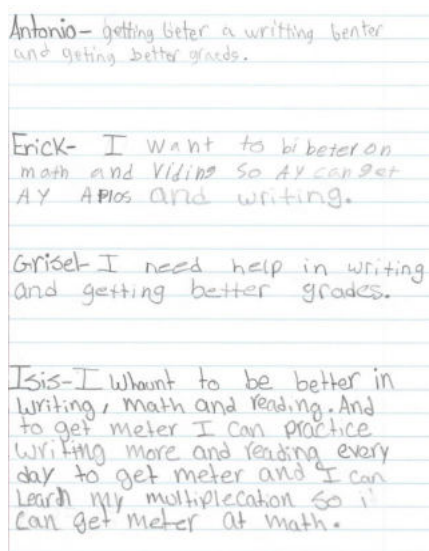 Antonio- getting beter a writting benter
and geting better graeds.
Erick- I want to bi beter on
math and Viding so AY can get
AY APlos and writing.
Grisel- I need help in writing
and getting better grades.
Isis- I Whaunt to be better in
writing, math and reading. And
to get meter I can practice
writing more and reading every
day to get meter and I can
Learn my multiplecation so i
can get meter at math.